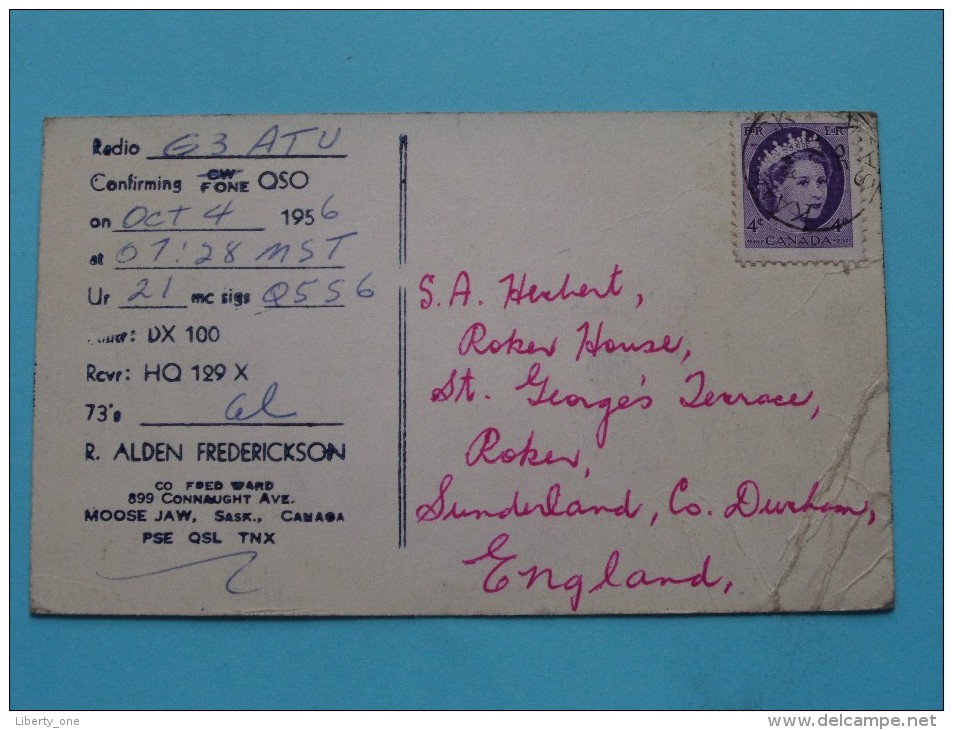 Radio G3ATU
Confirming CW FONE QSO
on Oct 4 1956
at 07:28 MST
Ur 21 mc sigs Q5S6
: DX 100
Rcvr: HQ 129 X
73's al
R. ALDEN FREDERICKSON
CO FRED WARD
899 CONNAUGHT AVE.
MOOSE JAW, SASK., CANADA
PSE QSL TNX
E R E R
4¢ 4¢
CANADA
S.A. Herbert,
Roker House,
St. George's Terrace,
Roker,
Sunderland, Co. Durham,
England,
Liberty_one
www.delcampe.net